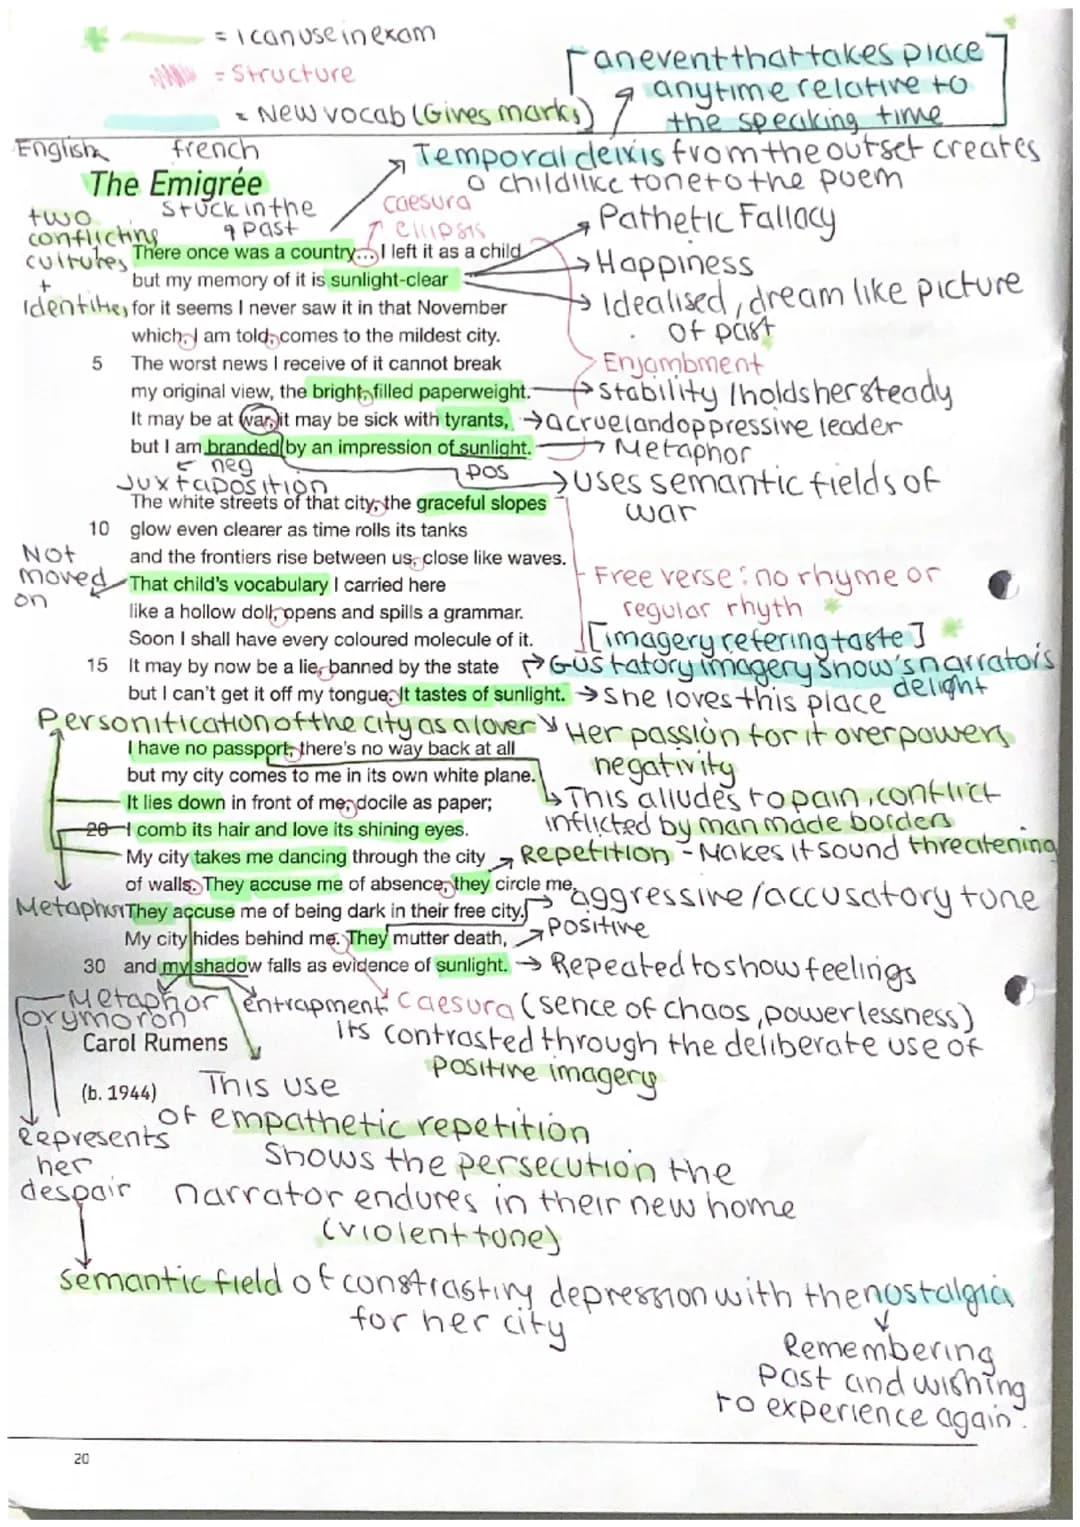 = I can use in exam
= Structure
= New vocab (Gives marks)
an event that takes place
anytime relative to
the speaking time
English french
The Emigrée
Temporal deixis from the outset creates
a childlike tone to the poem
two
conflicting
cultures
+
Identities
Stuck in the
past
caesura
ellipsis
Pathetic Fallacy
Happiness
Idealised, dream like picture
of past
There once was a country... I left it as a child
but my memory of it is sunlight-clear
for it seems I never saw it in that November
which, I am told, comes to the mildest city.
Enjambment
5 The worst news I receive of it cannot break
my original view, the bright, filled paperweight.
Stability / holds her steady
It may be at war, it may be sick with tyrants,
a cruel and oppressive leader
but I am branded by an impression of sunlight.
Metaphor
neg
pos
Juxtaposition
Uses semantic fields of
war
The white streets of that city, the graceful slopes
10 glow even clearer as time rolls its tanks
and the frontiers rise between us, close like waves.
Not
moved
on
That child's vocabulary I carried here
like a hollow doll, opens and spills a grammar.
Soon I shall have every coloured molecule of it.
Free verse: no rhyme or
regular rhyth
[imagery refering taste]
15 It may by now be a lie, banned by the state
Gustatory imagery show's narrators
delight
but I can't get it off my tongue. It tastes of sunlight.
She loves this place
Personification of the city as a lover
Her passion for it overpowers
negativity
I have no passport, there's no way back at all
but my city comes to me in its own white plane.
This alludes to pain, conflict
inflicted by man made borders
It lies down in front of me, docile as paper;
20 I comb its hair and love its shining eyes.
My city takes me dancing through the city
Repetition - Makes it sound threatening
of walls. They accuse me of absence, they circle me.
aggressive/accusatory tone
Metaphor
They accuse me of being dark in their free city.
Positive
My city hides behind me. They mutter death,
30 and my shadow falls as evidence of sunlight.
Repeated to show feelings
Metaphor
oxymoron
entrapment
Caesura (sence of chaos, powerlessness)
Its contrasted through the deliberate use of
positive imagery
Carol Rumens
(b. 1944)
This use
of empathetic repetition
Shows the persecution the
narrator endures in their new home
(violent tone)
Represents
her
despair
semantic field of constrasting depression with the nostalgia
for her city
Remembering
past and wishing
to experience again.
20